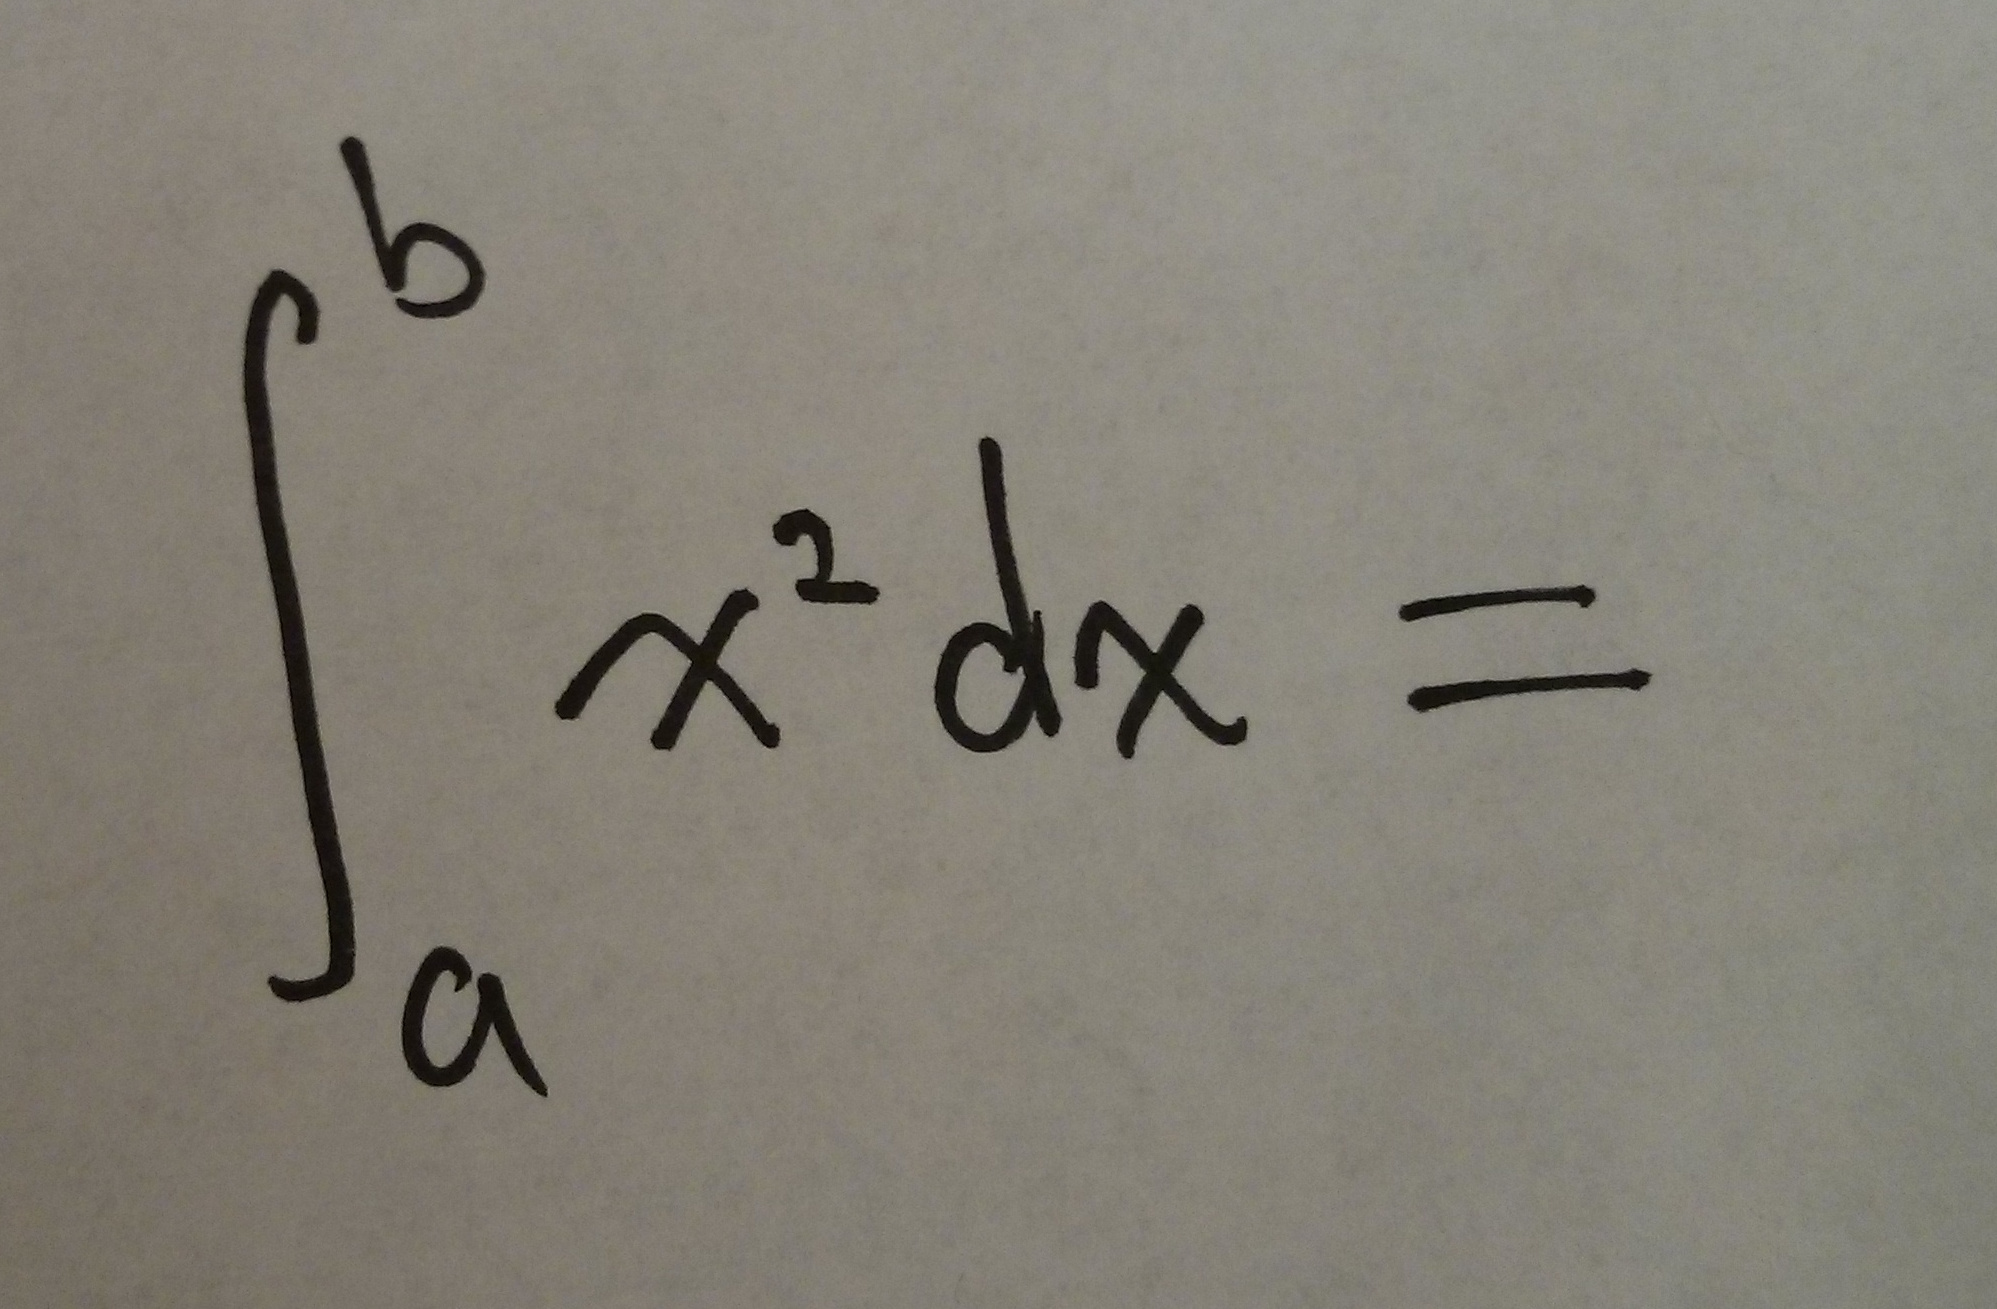 ∫_a^b x² dx =